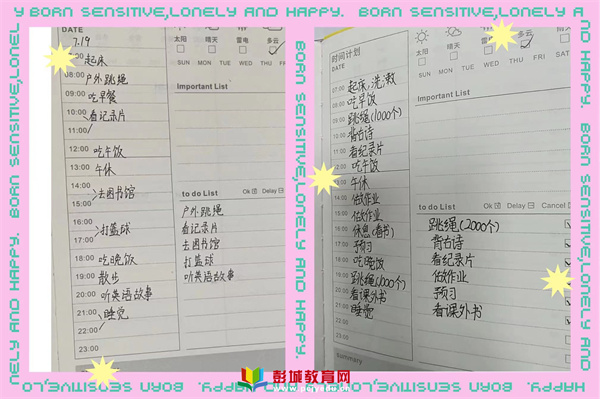 Y BORN SENSITIVE,LONELY AND HAPPY. BORN SENSITIVE,LONELY A
DATE
7.19
太阳
晴天
雷电
多云
SUN MON TUE WED THU FRI SAT
Important List
:00 起床
08:00 户外跳绳
09:00 吃早餐
10:00 看记录片
11:00
12:00 吃午饭
13:00 午休
14:00 去图书馆
15:00
16:00 打篮球
17:00
18:00 吃晚饭
19:00 散步
20:00 听英语故事
21:00 睡觉
22:00
23:00
to do List Ok Delay
户外跳绳
看记录片
去图书馆
打篮球
听英语故事
时间计划
DATE
太阳
晴天
雷电
多云
SUN MON TUE WED THU FRI SAT
Important List
07:00 起床、洗漱
吃早饭
跳绳(1000个)
背古诗
看纪录片
12:00 吃午饭
午休
14:00 做作业
15:00 做作业
16:00 休息(看书)
17:00 预习
18:00 吃晚饭
19:00 跳绳(1000个)
20:00 看课外书
21:00 睡觉
23:00
to do List Ok Delay Cancel
跳绳(2000个)
背古诗
看纪录片
做作业
预习
看课外书
summary
彭城教育网